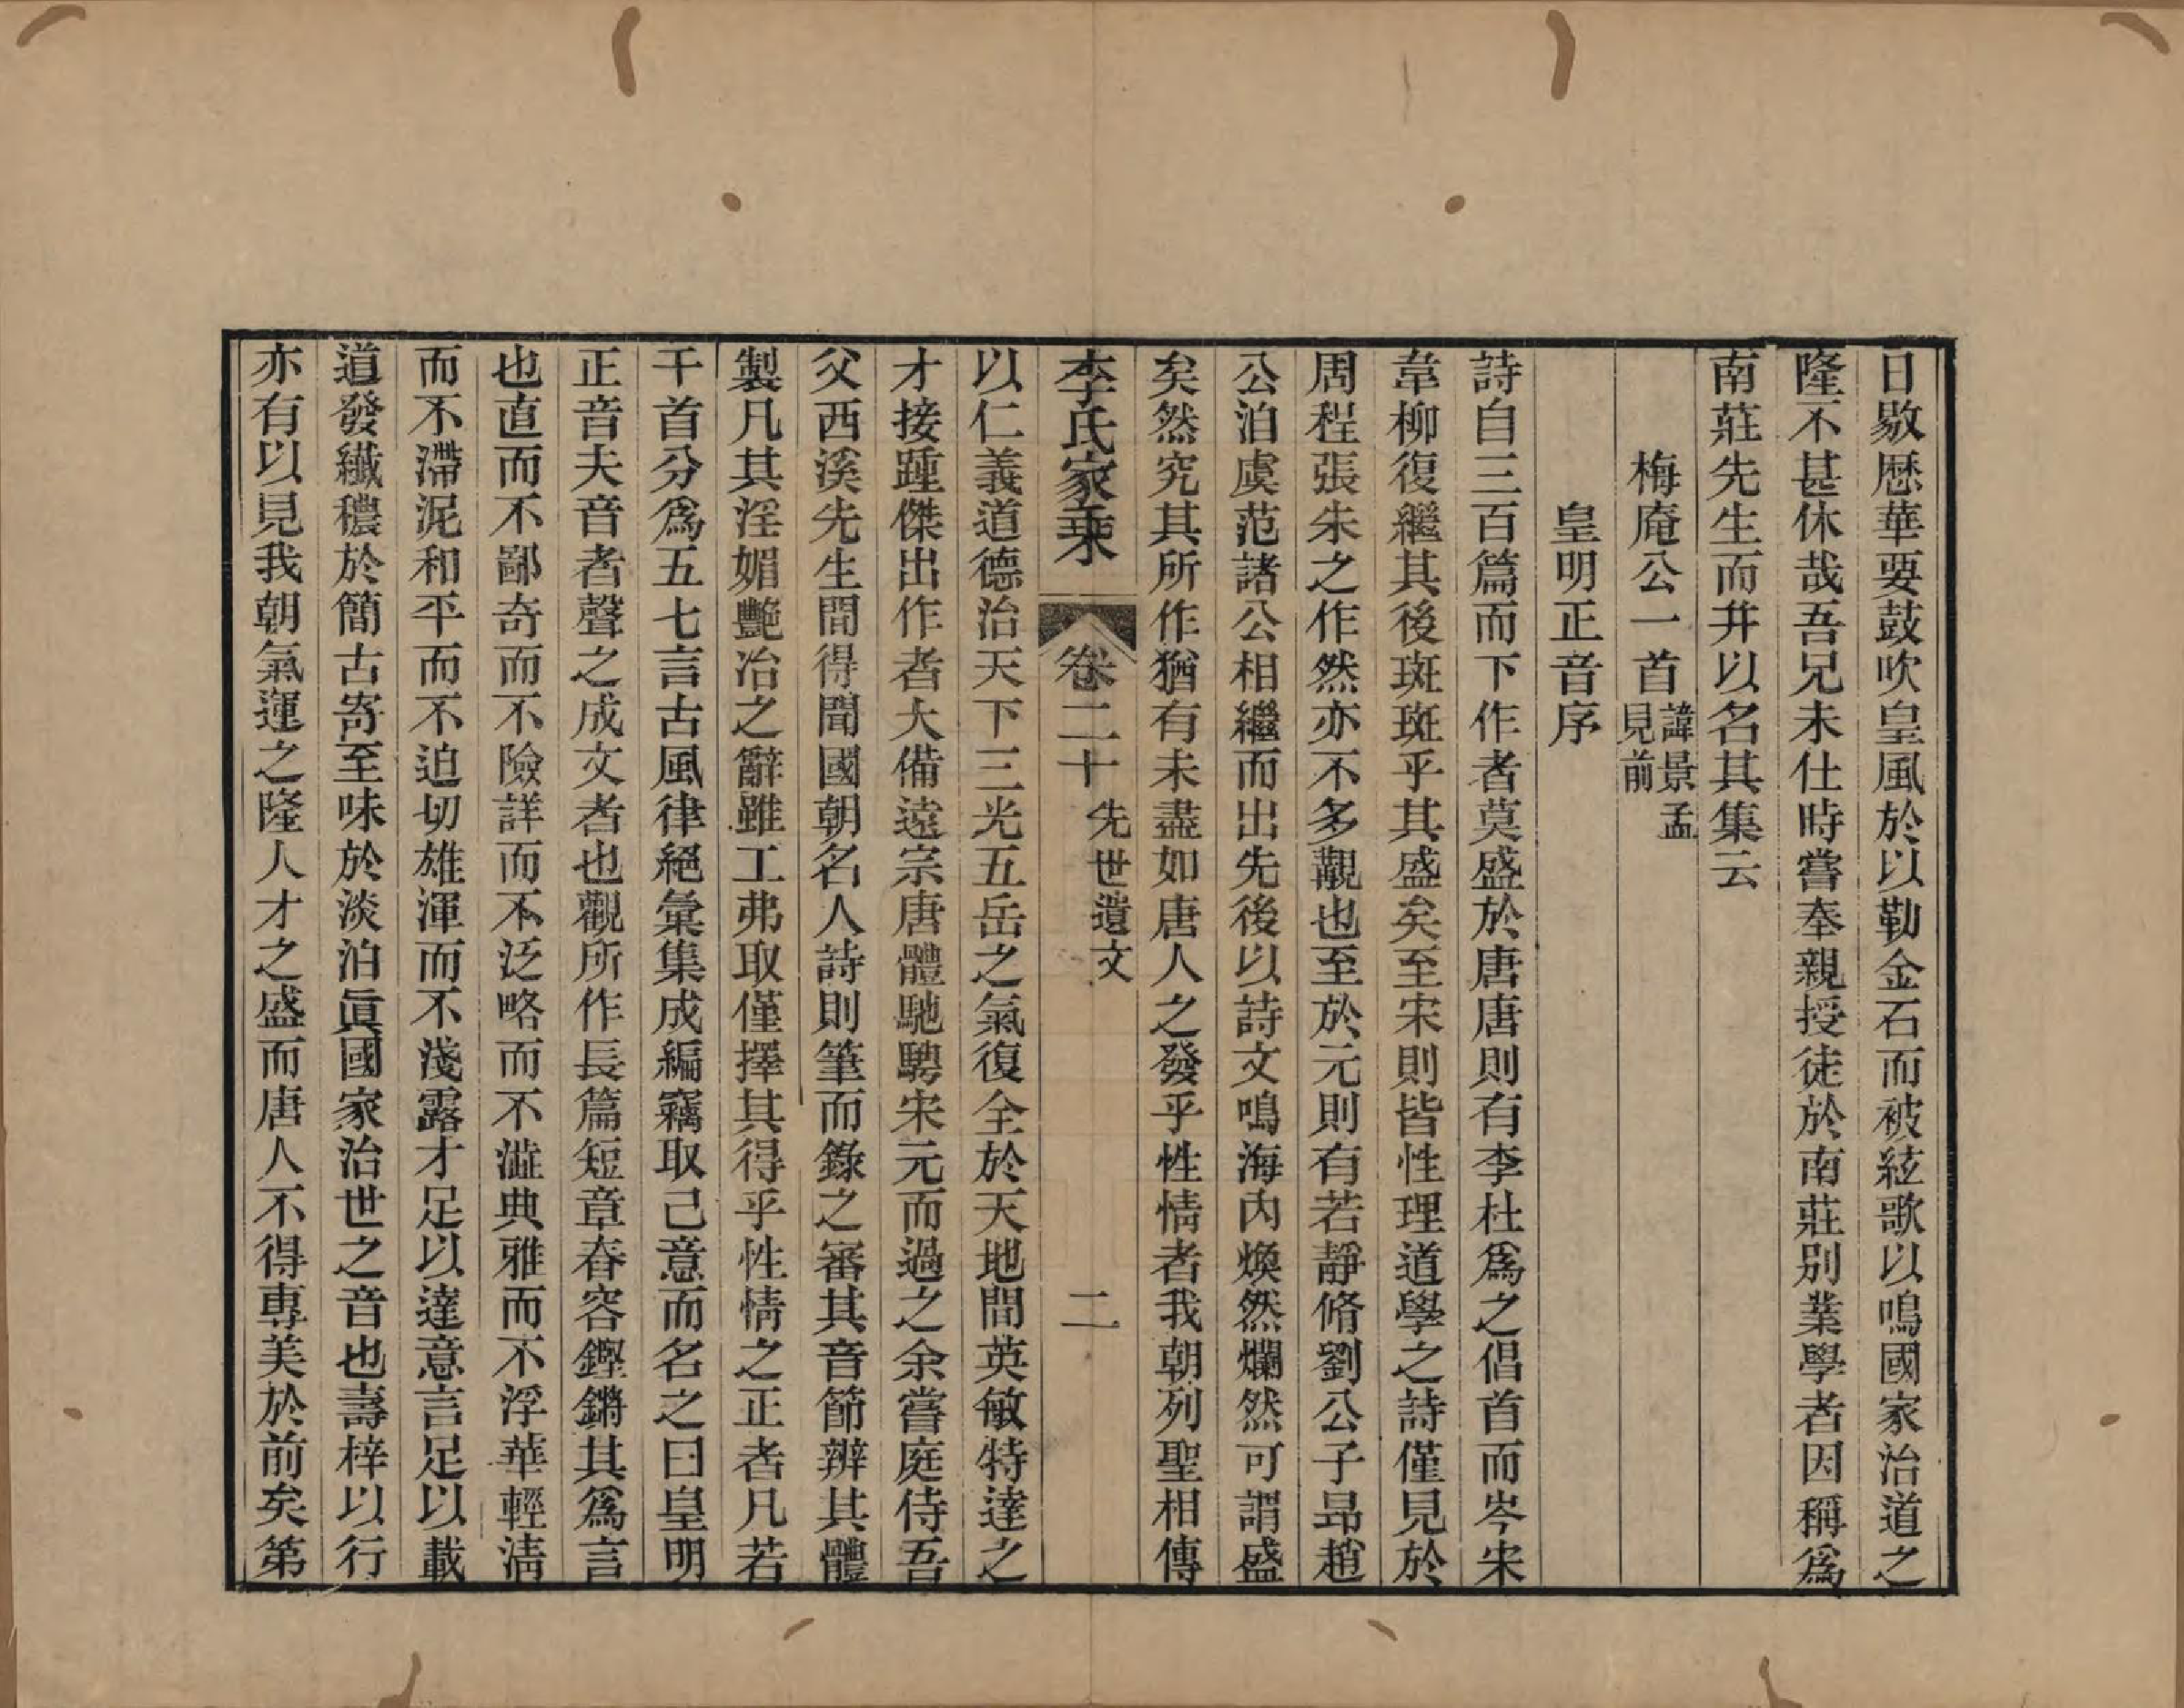 日敭歴華要鼓吹皇風於以勒金石而被絃歌以鳴國家治道之
隆不甚休哉吾兄未仕時嘗奉親授徒於南莊别業學者因稱爲
南莊先生而幷以名其集云
梅庵公一首諱景孟見前
皇明正音序
詩自三百篇而下作者莫盛於唐唐則有李杜爲之倡首而岑宋
韋柳復繼其後斑斑乎其盛矣至宋則皆性理道學之詩僅見於
周程張朱之作然亦不多覯也至於元則有若靜脩劉公子昻趙
公泊虞范諸公相繼而出先後以詩文鳴海內煥然爛然可謂盛
矣然究其所作猶有未盡如唐人之發乎性情者我朝列聖相傳
李氏家乘 卷二十 先世遺文 二
以仁義道德治天下三光五岳之氣復全於天地間英敏特達之
才接踵傑出作者大備遠宗唐體馳騁宋元而過之余嘗庭侍吾
父西溪先生間得聞國朝名人詩則筆而錄之審其音節辨其體
製凡其淫媚艷冶之辭雖工弗取僅擇其得乎性情之正者凡若
干首分爲五七言古風律絕彙集成編竊取己意而名之曰皇明
正音夫音者聲之成文者也觀所作長篇短章舂容鏗鏘其爲言
也直而不鄙奇而不險詳而不泛略而不澁典雅而不浮華輕淸
而不滯泥和平而不迫切雄渾而不淺露才足以達意言足以載
道發纖穠於簡古寄至味於淡泊眞國家治世之音也壽梓以行
亦有以見我朝氣運之隆人才之盛而唐人不得專美於前矣第